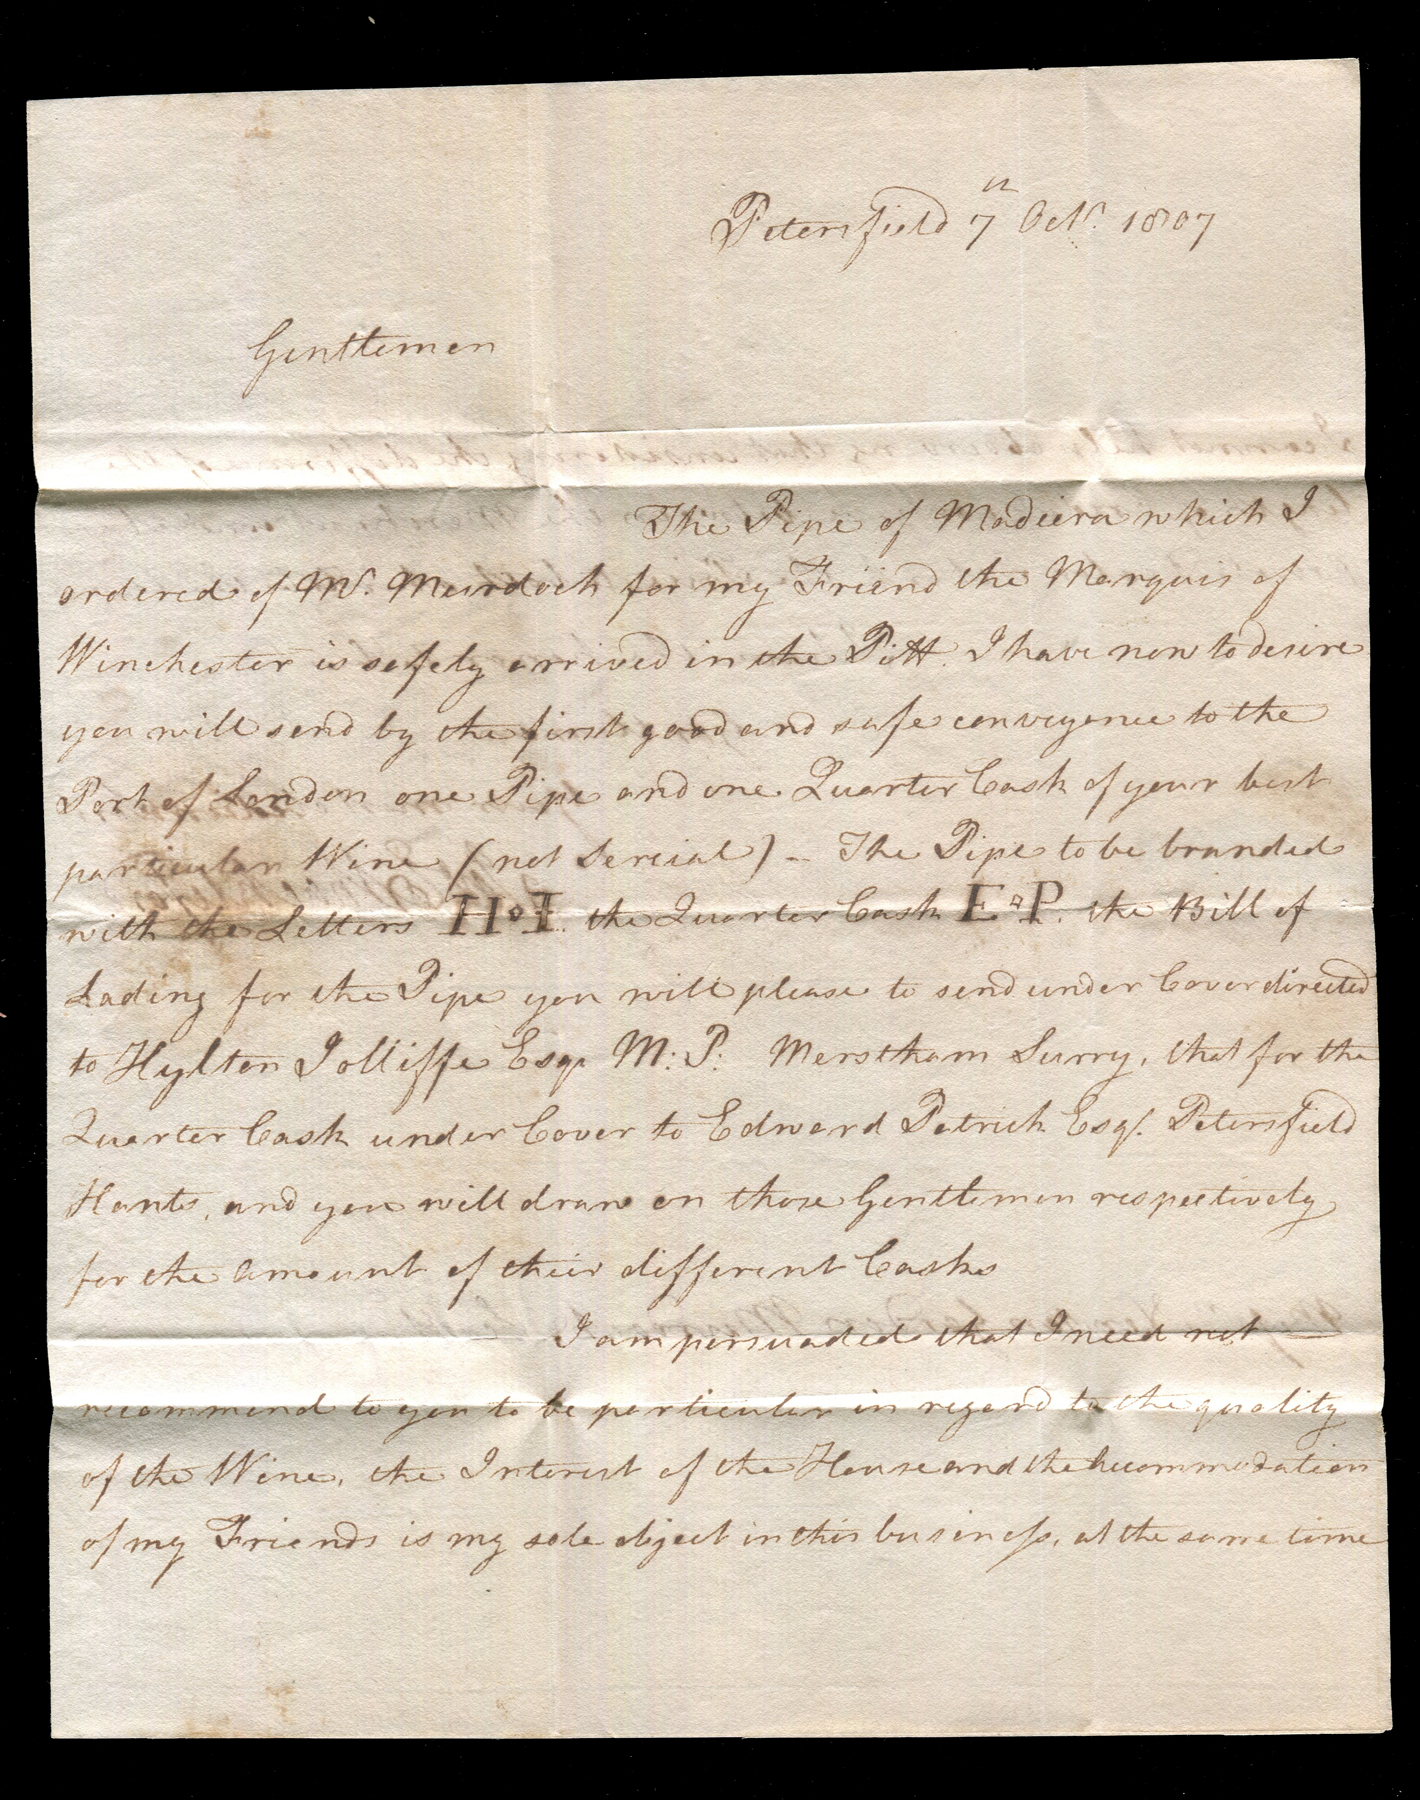 Petersfield 7th Octr. 1807
Gentlemen
The Pipe of Madeira which I
ordered of Mr. Murdoch for my Friend the Marquis of
Winchester is safely arrived in the Pitt. I have now to desire
you will send by the first good and safe conveyance to the
Port of London one Pipe and one Quarter Cask of your best
particular Wine (not Sercial) - The Pipe to be branded
with the Letters H◇I. the Quarter Cask E◇P. the Bill of
Lading for the Pipe you will please to send under Cover directed
to Hylton Jolliffe Esqr M: P: Merstham Surry, that for the
Quarter Cask under Cover to Edward Patrick Esqr. Petersfield
Hants, and you will draw on those Gentlemen respectively
for the amount of their different Casks
I am persuaded that I need not —
recommend to you to be particular in regard to the quality
of the Wine, the Interest of the House and the Accommodation
of my Friends is my sole object in this business, at the same time